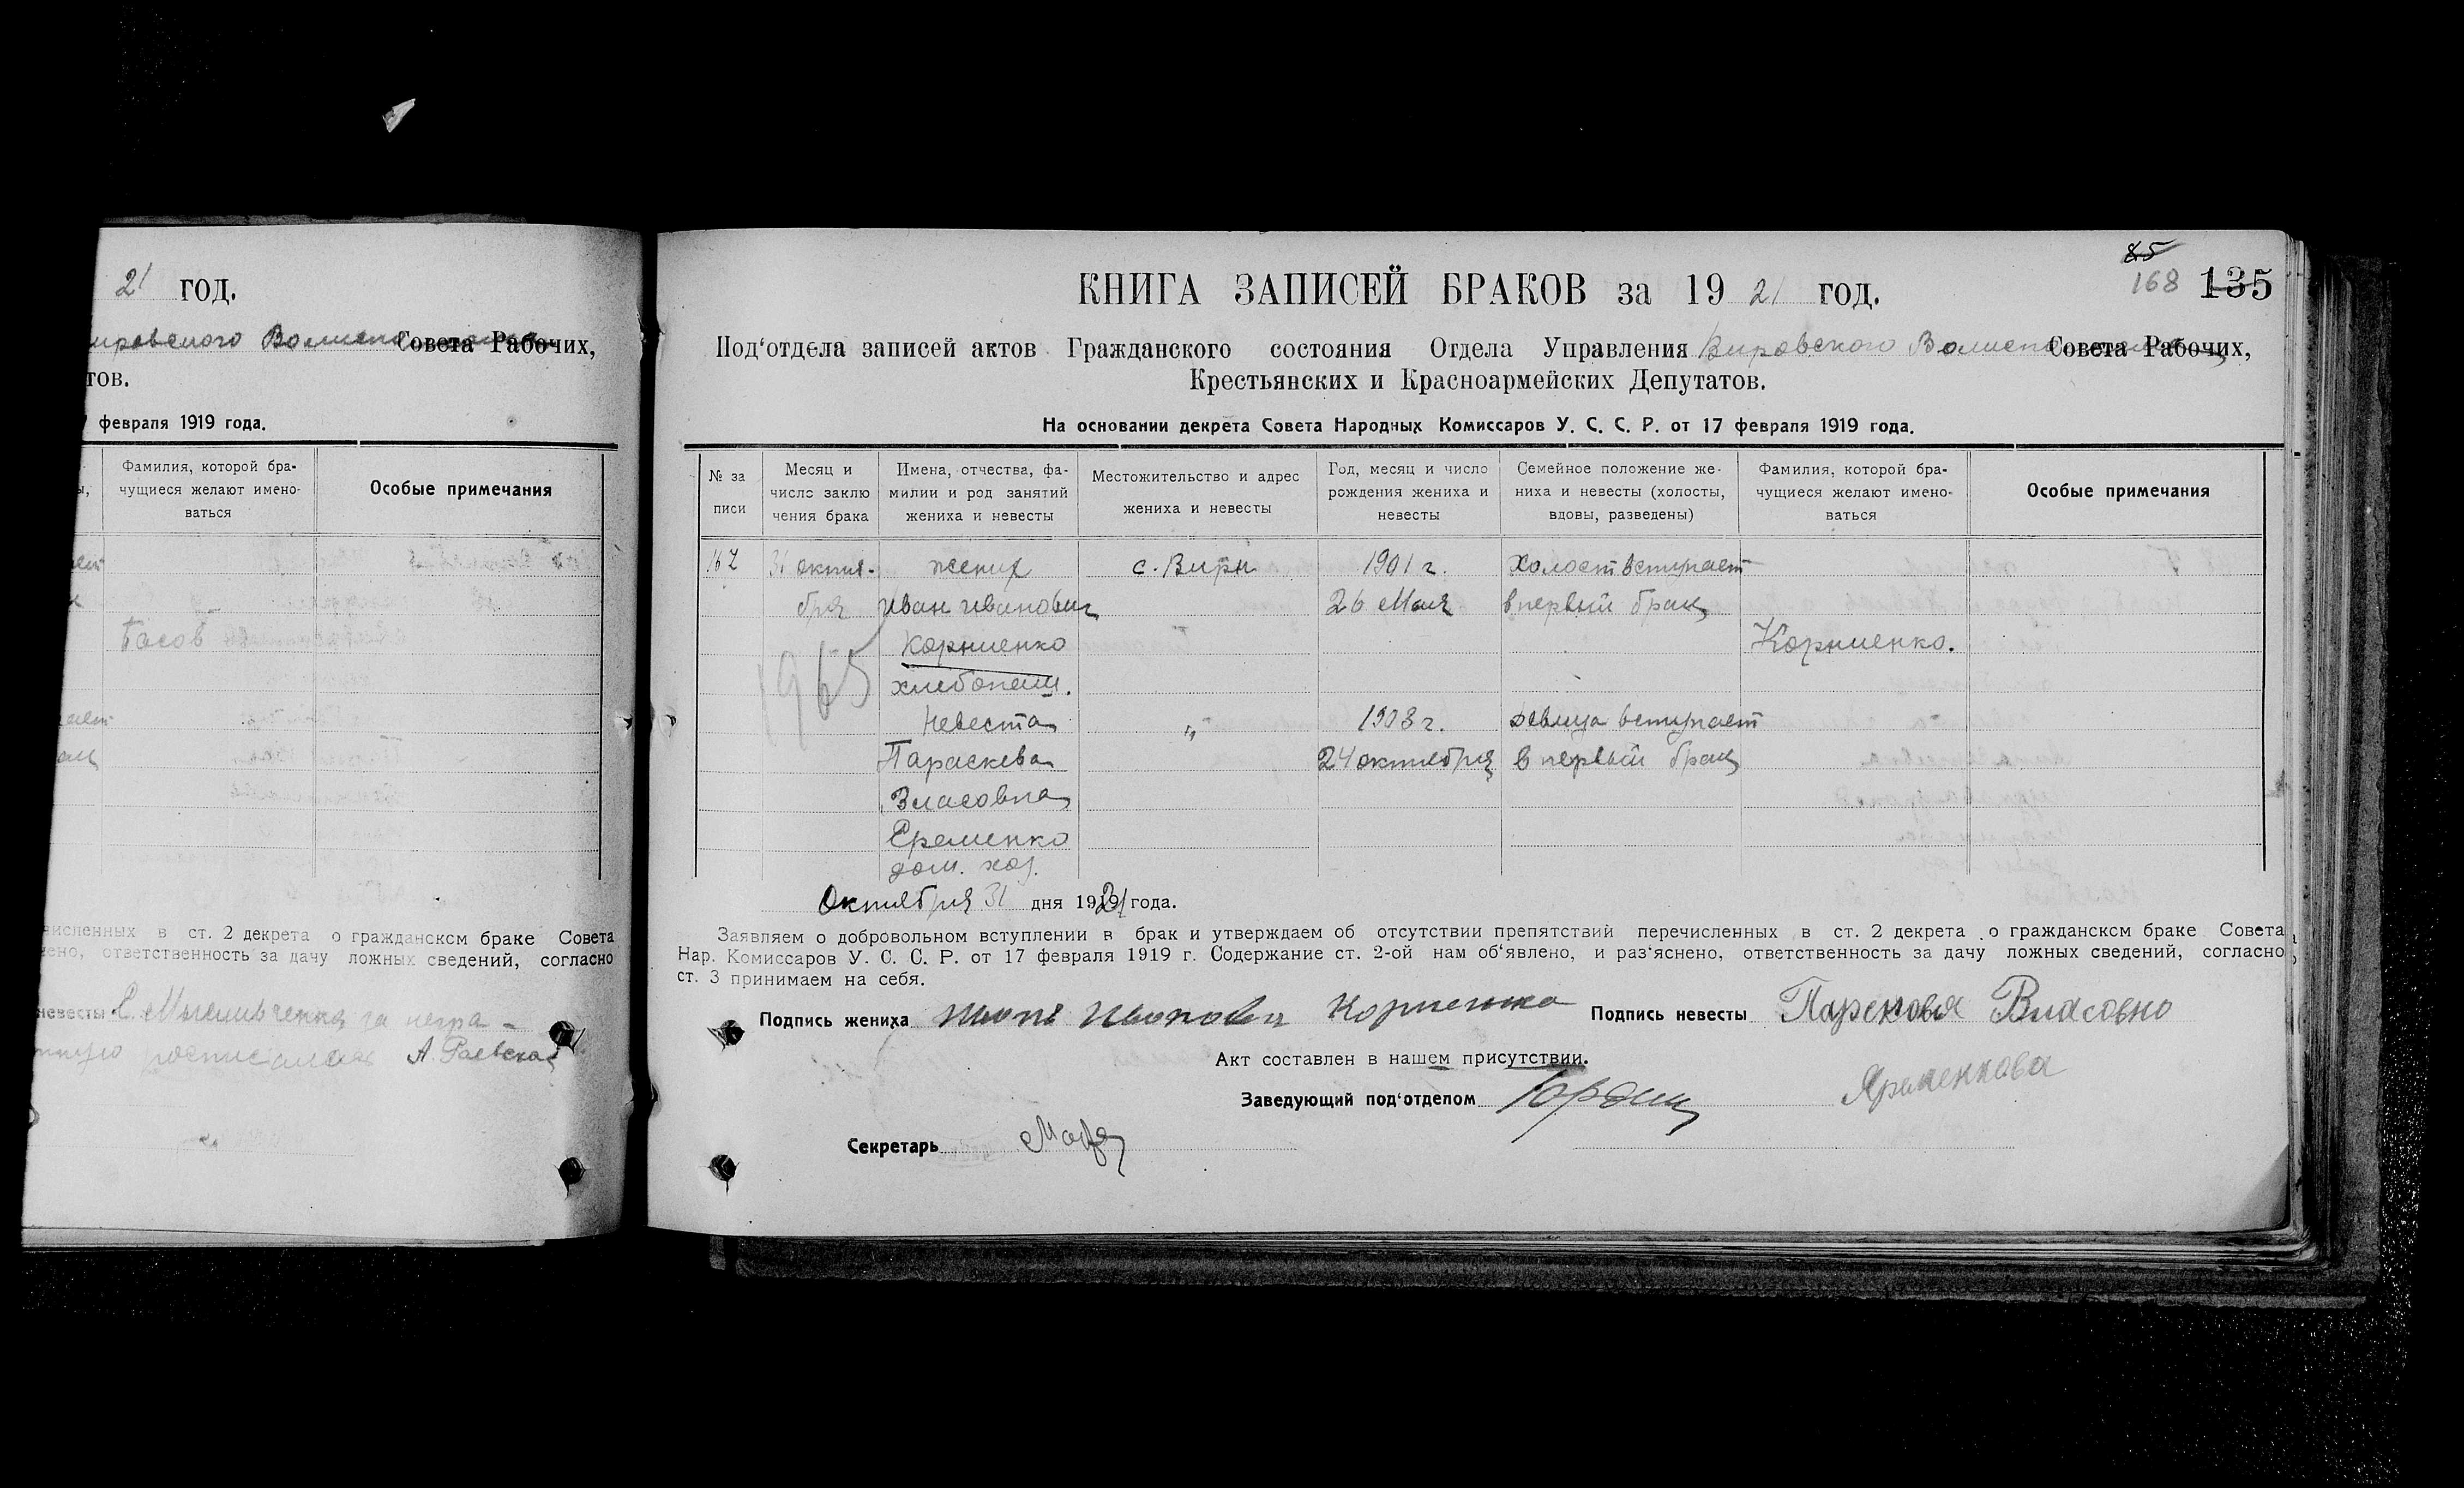 21 ГОД.
Совета Рабочих,
тов.
февраля 1919 года.
Фамилия, которой бра-
чущиеся желают имено-
ваться
Особые примечания
Басов
численных в ст. 2 декрета о гражданском браке Совета
ответственность за дачу ложных сведений, согласно
невесты
А. Раевская
85
168 135
КНИГА ЗАПИСЕЙ БРАКОВ за 1921 год.
Под'отдела записей актов Гражданского состояния Отдела Управления Вировского Совета Рабочих,
Крестьянских и Красноармейских Депутатов.
На основании декрета Совета Народных Комиссаров У. С. С. Р. от 17 февраля 1919 года.
№ за
писи
Месяц и
число заклю
чения брака
Имена, отчества, фа-
милии и род занятий
жениха и невесты
Местожительство и адрес
жениха и невесты
Год, месяц и число
рождения жениха и
невесты
Семейное положение же-
ниха и невесты (холосты,
вдовы, разведены)
Фамилия, которой бра-
чущиеся желают имено-
ваться
Особые примечания
31 октя- жених с. Виры 1901 г. Холост вступает
бря Иван Иванович 26 Мая в первый брак
Корниенко Корниенко.
хлебопаш.
1965
Невеста „ 1903 г. девица вступает
Параскева 24 октября в первый брак
Власовна
Еременко
дом. хоз.
Октября 31 дня 1921 года.
Заявляем о добровольном вступлении в брак и утверждаем об отсутствии препятствий перечисленных в ст. 2 декрета о гражданском браке Совета
Нар. Комиссаров У. С. С. Р. от 17 февраля 1919 г. Содержание ст. 2-ой нам об'явлено, и раз'яснено, ответственность за дачу ложных сведений, согласно
ст. 3 принимаем на себя.
Подпись жениха Корниенко Подпись невесты Власовно
Акт составлен в нашем присутствии.
Заведующий под'отделом
Секретарь